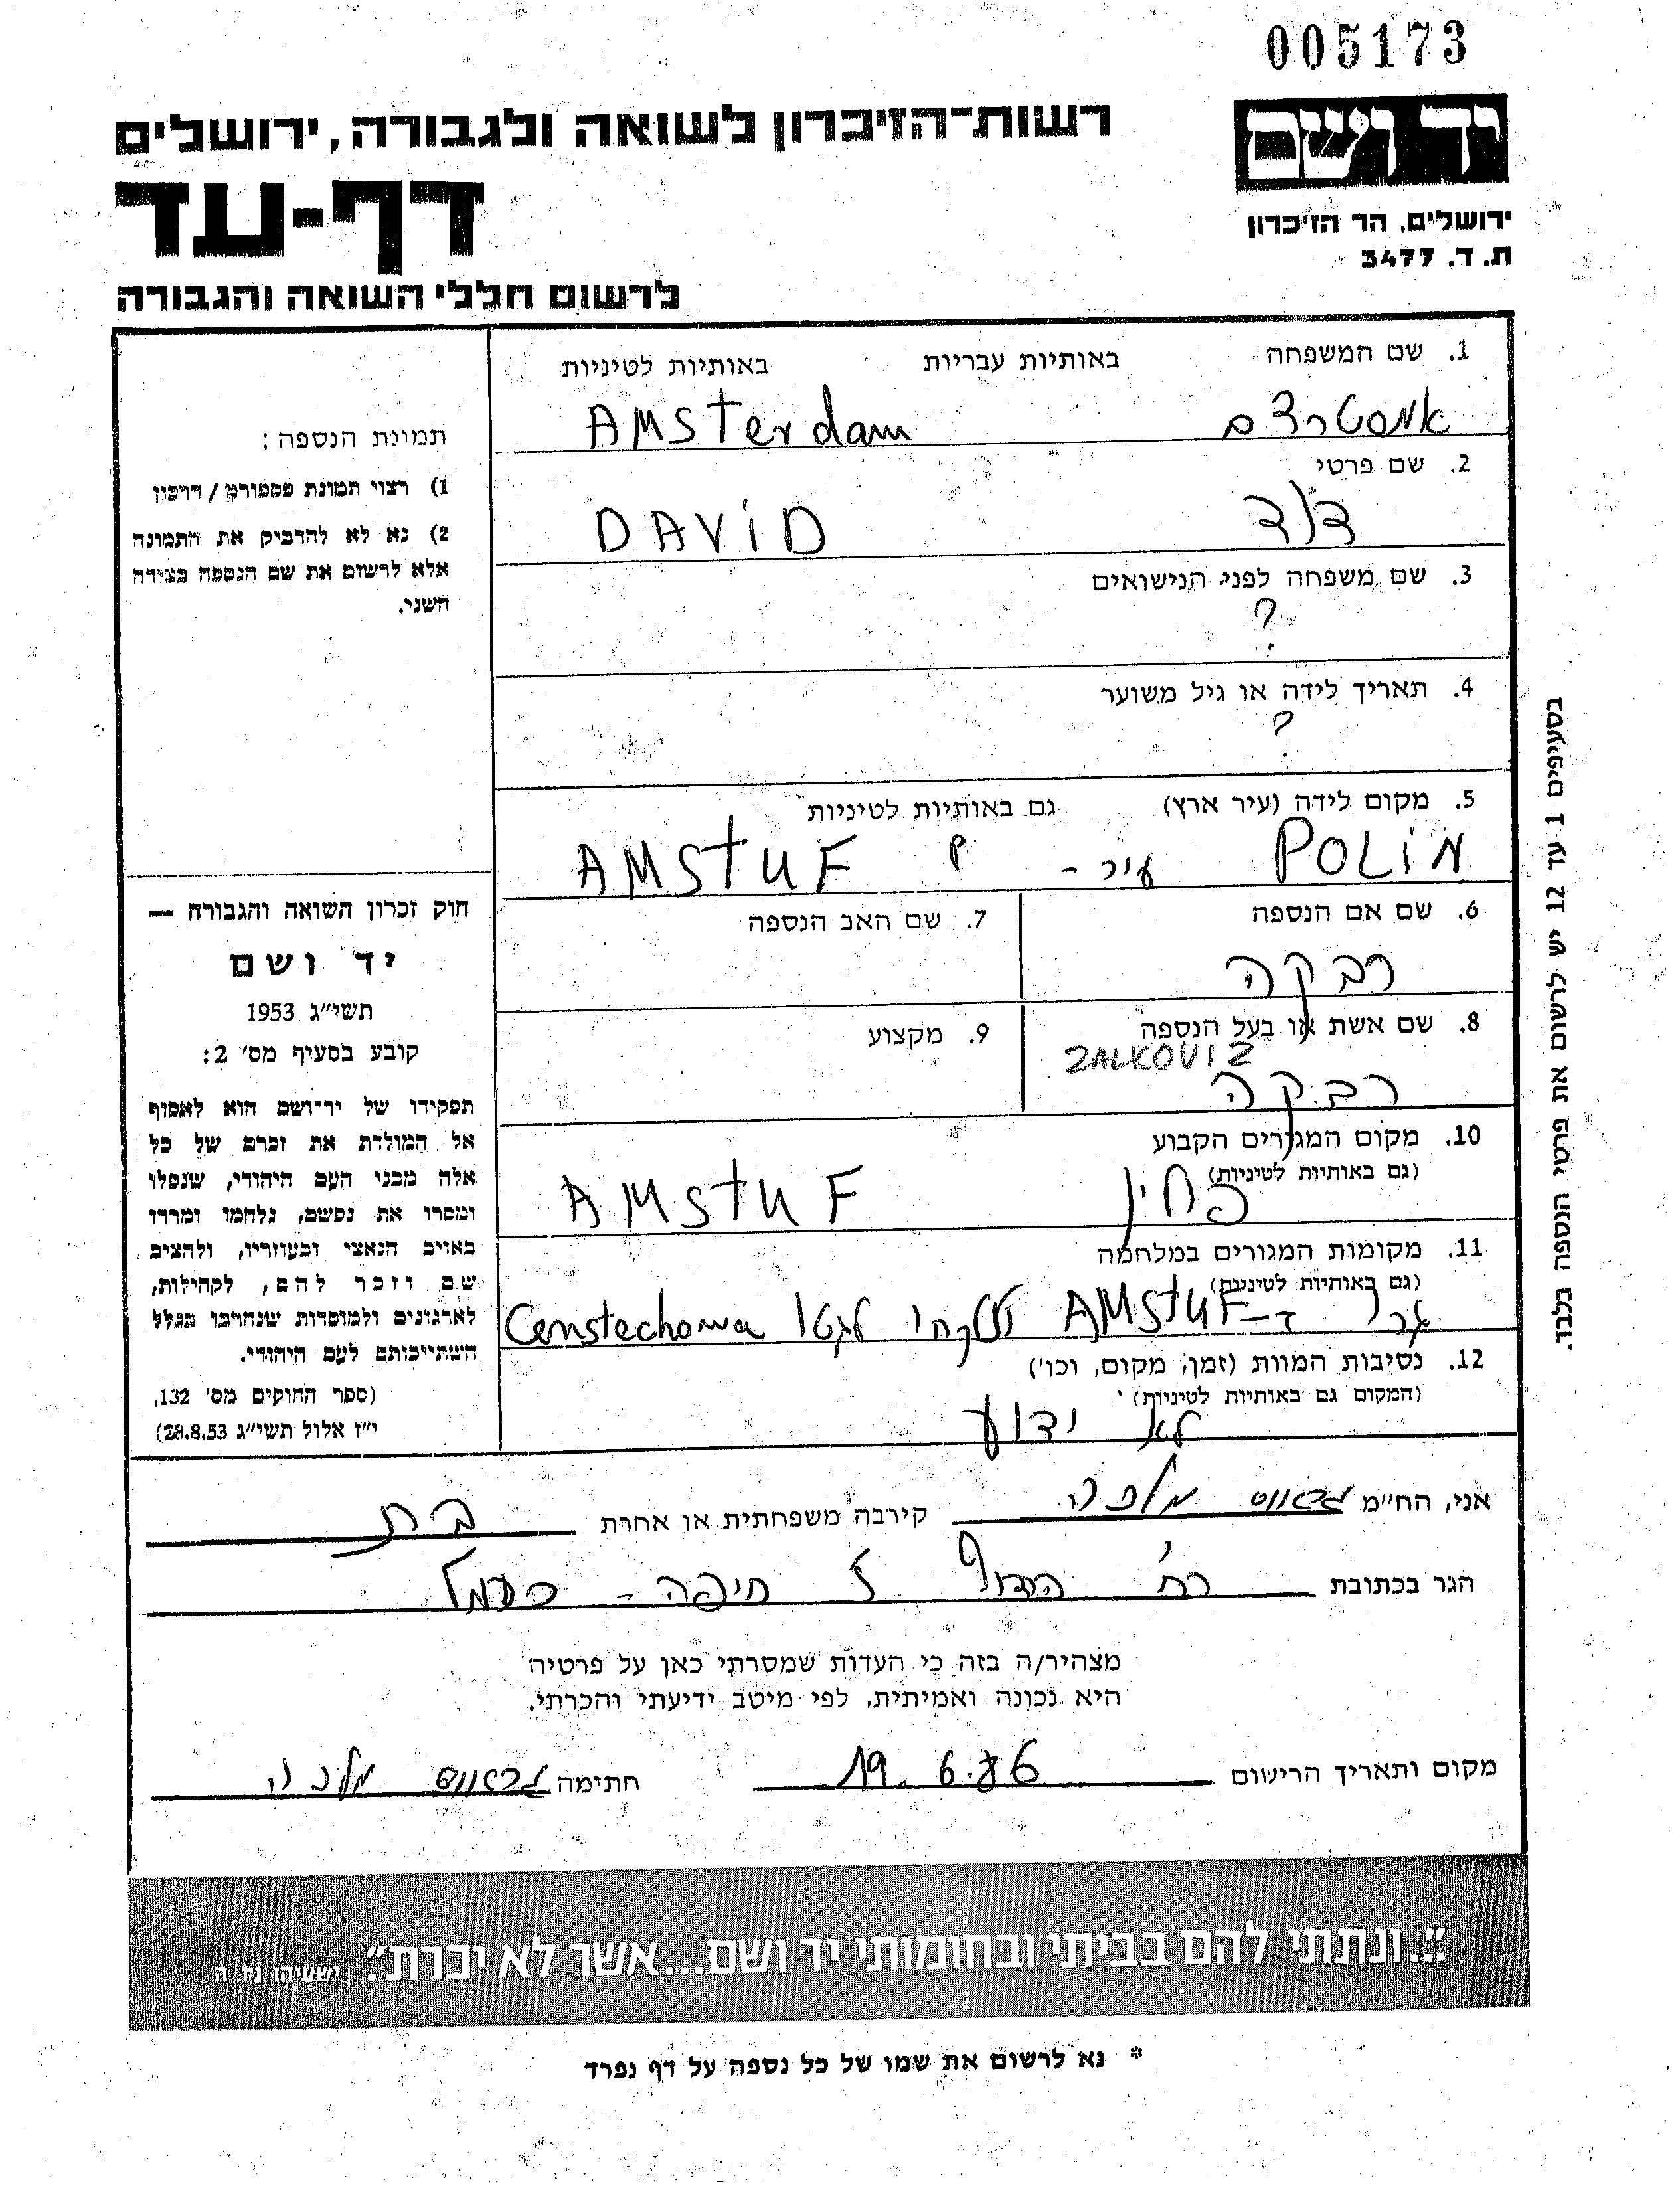 005173
יד ושם
רשות־הזיכרון לשואה ולגבורה, ירושלים
דף-עד
ירושלים, הר הזיכרון
ת. ד. 3477
לרשום חללי השואה והגבורה
1. שם המשפחה באותיות עבריות באותיות לטיניות
אמסטרדם AMSTerdam
2. שם פרטי
דוד DAViD
3. שם משפחה לפני הנישואים
?
4. תאריך לידה או גיל משוער
?
5. מקום לידה (עיר ארץ) גם באותיות לטיניות
POLiN עיר - ? AMSTUF
6. שם אם הנספה 7. שם האב הנספה
רבקה
8. שם אשת או בעל הנספה 9. מקצוע
ZALKOVIZ
רבקה
10. מקום המגורים הקבוע
(גם באותיות לטיניות)
פולין AMSTUF
11. מקומות המגורים במלחמה
(גם באותיות לטיניות)
גרו ב- AMSTUF ונלקחו לגטו Censtechowa
12. נסיבות המוות (זמן, מקום, וכו')
(המקום גם באותיות לטיניות)
לא ידוע
תמונת הנספה:
1) רצוי תמונת פספורט / דרכון
2) נא לא להדביק את התמונה
אלא לרשום את שם הנספה בצידה
השני.
חוק זכרון השואה והגבורה —
יד ושם
תשי״ג 1953
קובע בסעיף מס׳ 2:
תפקידו של יד־ושם הוא לאסוף
אל המולדת את זכרם של כל
אלה מבני העם היהודי, שנפלו
ומסרו את נפשם, נלחמו ומרדו
באויב הנאצי ובעוזריו, ולהציב
שם וזכר להם, לקהילות,
לארגונים ולמוסדות שנחרבו בגלל
השתייכותם לעם היהודי.
(ספר החוקים מס׳ 132,
י״ז אלול תשי״ג 28.8.53)
בסעיפים 1 עד 12 יש לרשום את פרטי הנספה בלבד.
אני, הח״מ מלכה קירבה משפחתית או אחרת בת
הגר בכתובת רח' חיפה - כרמל
מצהיר/ה בזה כי העדות שמסרתי כאן על פרטיה
היא נכונה ואמיתית, לפי מיטב ידיעתי והכרתי.
מקום ותאריך הרישום 19.6.86 חתימה מלכה
״...ונתתי להם בביתי ובחומותי יד ושם...אשר לא יכרת״. ישעיהו נו ה
* נא לרשום את שמו של כל נספה על דף נפרד